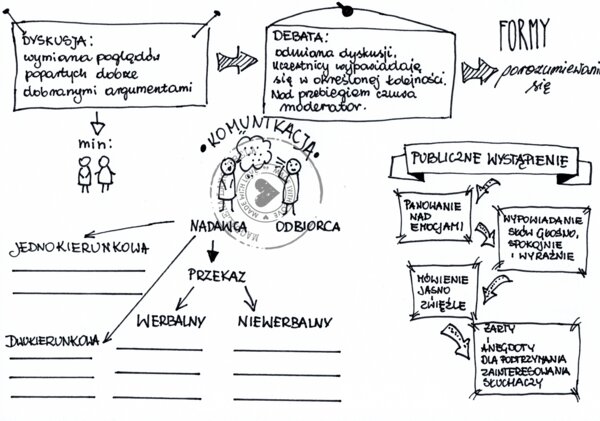 DYSKUSJA:
wymiana poglądów
popartych dobrze
dobranymi argumentami
DEBATA:
odmiana dyskusji.
Uczestnicy wypowiadają
się w określonej kolejności.
Nad przebiegiem czuwa
moderator.
FORMY
porozumiewani
się
min:
KOMUNIKACJA
NADAWCA
ODBIORCA
JEDNOKIERUNKOWA
PRZEKAZ
WERBALNY
NIEWERBALNY
DWUKIERUNKOWA
PUBLICZNE WYSTĄPIENIE
PANOWANIE
NAD
EMOCJAMI
WYPOWIADANIE
SŁÓW GŁOŚNO,
SPOKOJNIE
I WYRAŹNIE
MÓWIENIE
JASNO
I
ZWIĘŹLE
ŻARTY
I
ANEGDOTY
DLA PODTRZYMANIA
ZAINTERESOWANIA
SŁUCHACZY